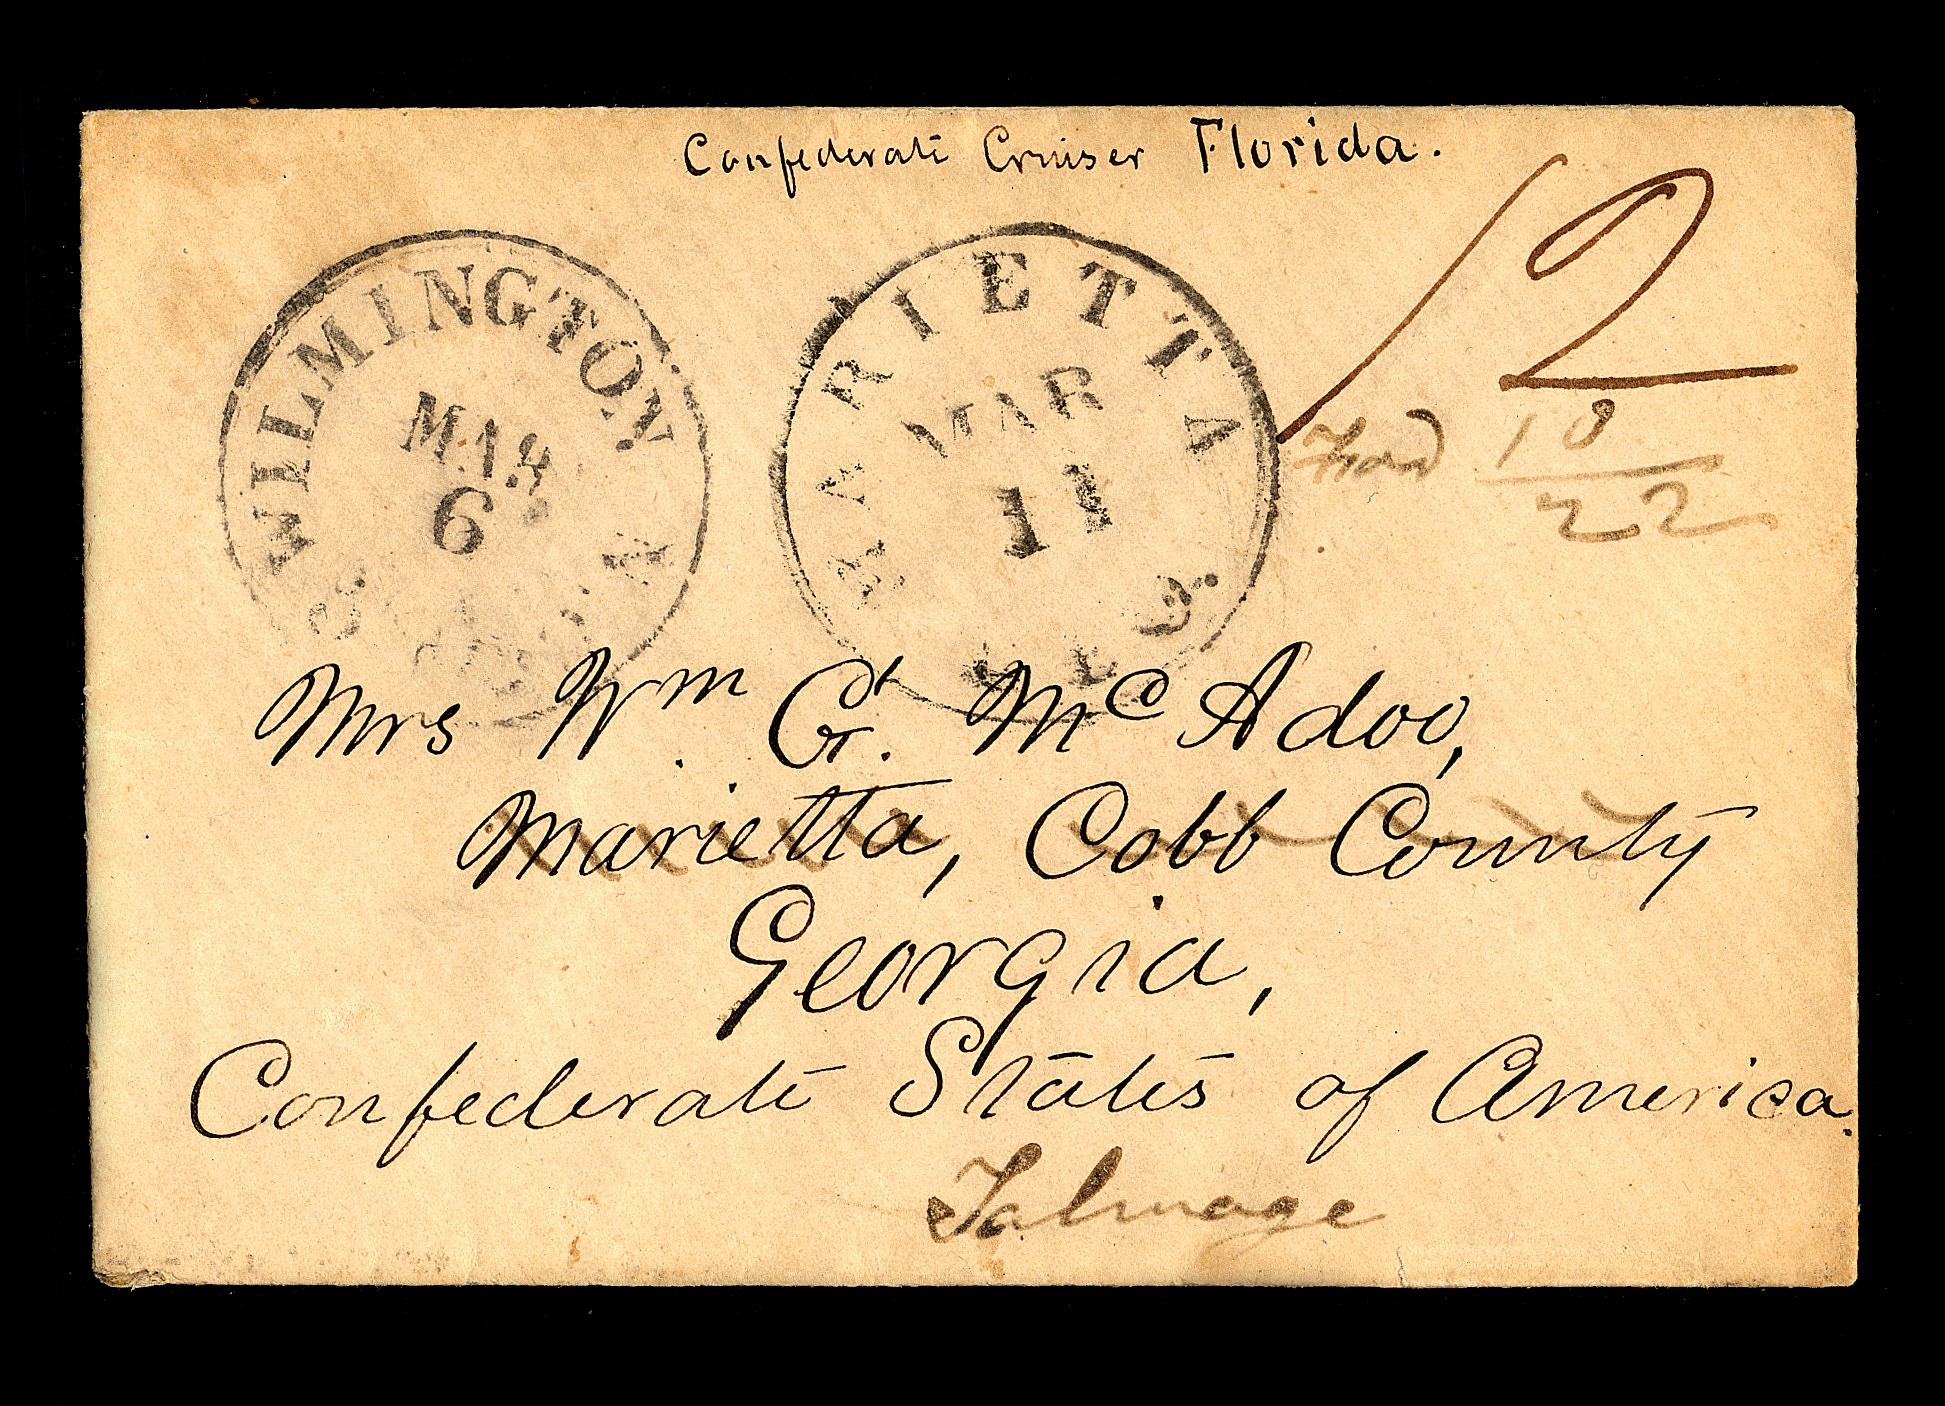 Confederate Cruiser Florida.
WILMINGTON
MAR
6
MARIETTA
MAR
11
12
Ford 10
22
Mrs Wm. G. McAdoo,
Marietta, Cobb County
Georgia,
Confederate States of America.
Talmage